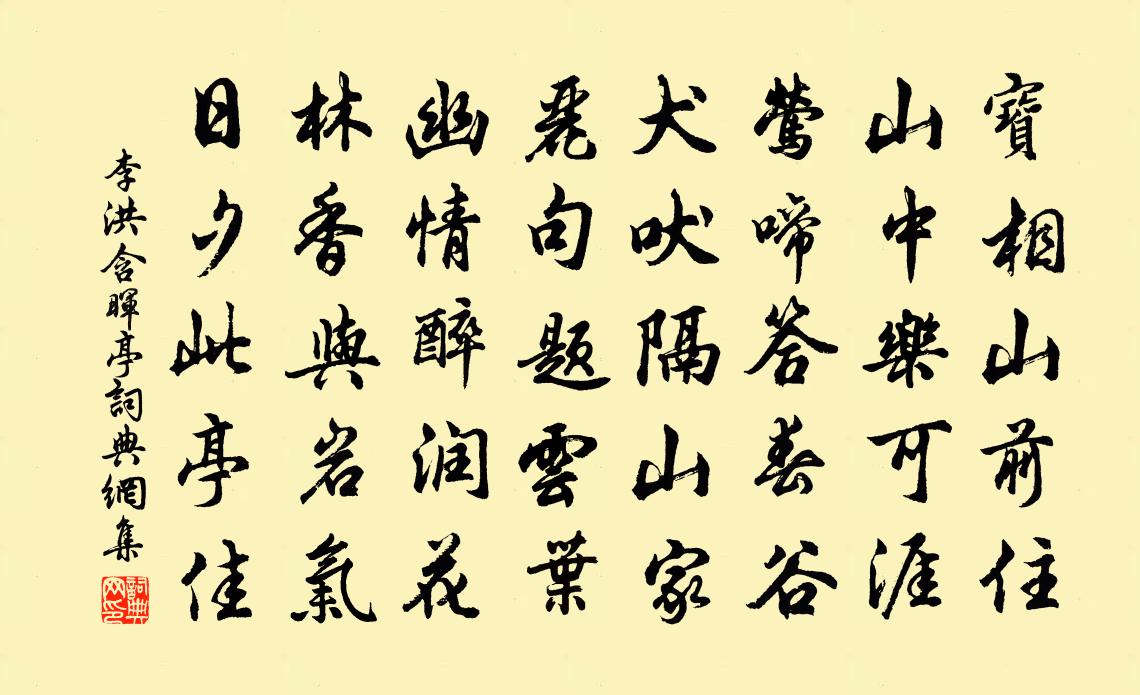 寶相山前住
山中樂可涯
鶯啼答春谷
犬吠隔山家
麗句題雲葉
幽情醉润花
林香與岩氣
日夕此亭佳
李洪含暉亭詞典網集
詞典网印